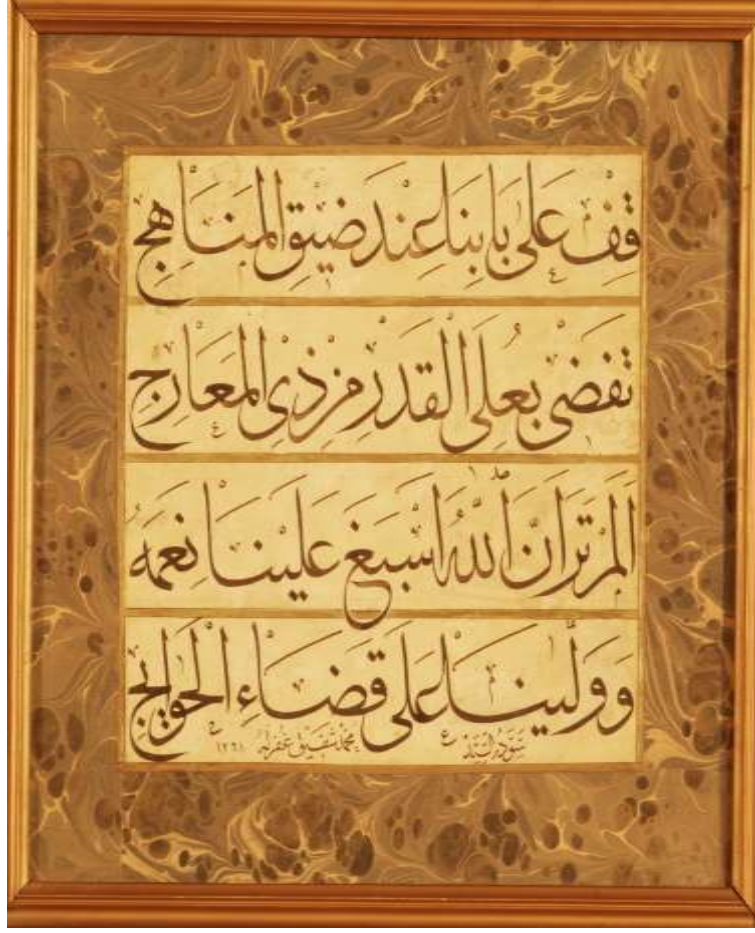 قِفْ عَلَى بَابِنَا عِنْدَ ضِيْقِ الْمَنَاهِجِ
تَفُضْ بِعُلَى الْقَدْرِ مِنْ ذِي الْمَعَارِجِ
اَلَمْ تَرَ اَنَّ اللّٰهَ اَسْبَغَ عَلَيْنَا نِعَمَهُ
وَوَلَّيْنَا عَلَى قَضَاءِ الْحَوَايِجِ
سوده السيد محمد شفيق غفر له ١٢٦١